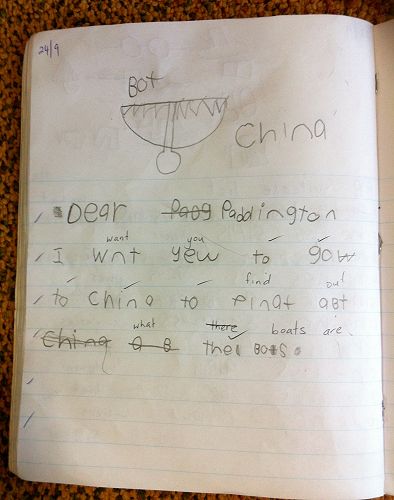 24/9
Bot
China
Dear Paog Paddington
want you
I wnt yew to gow
find out
to China to Finat abt
what there boats are.
China a B the Bots.